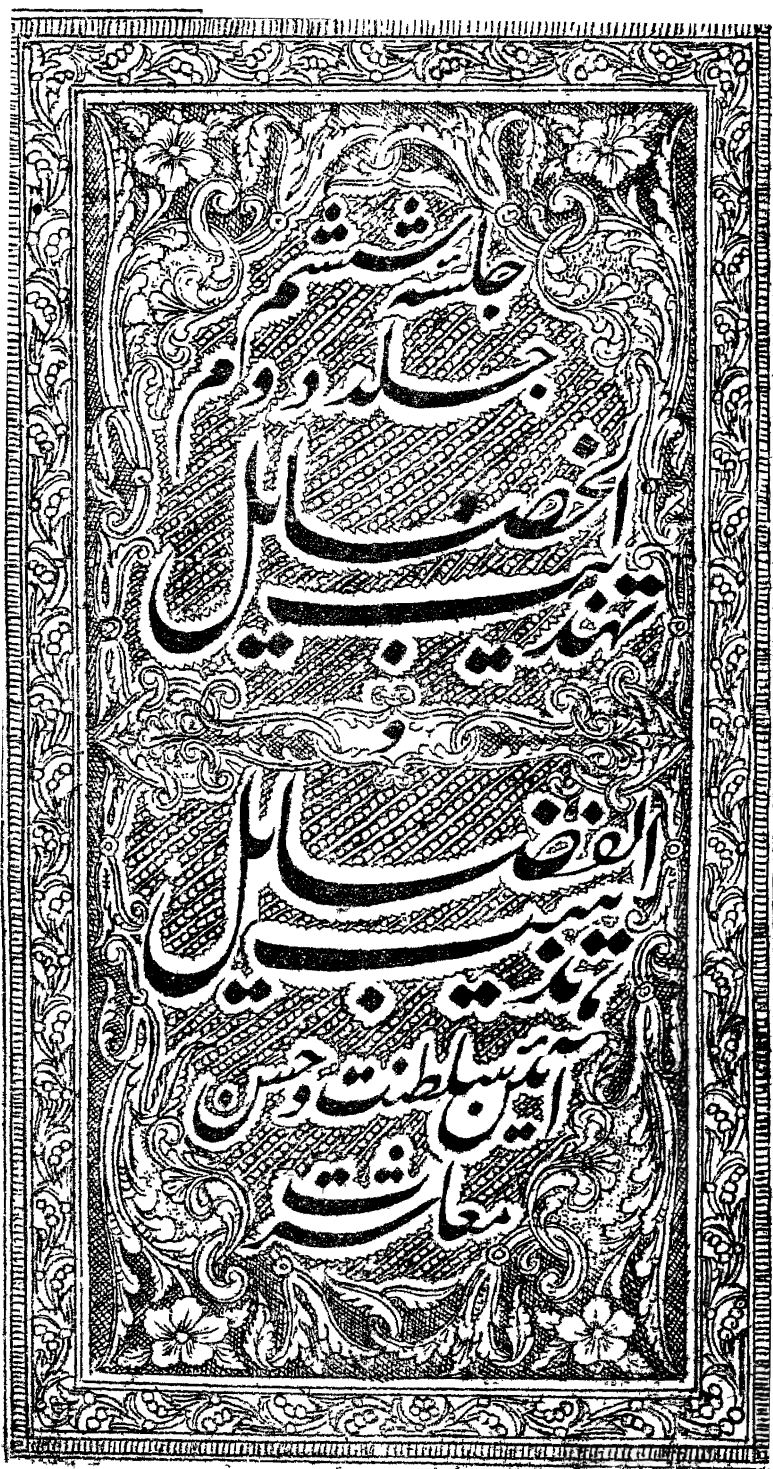 جلسهٔ ششم
جلد دوم
تهذیب الخصایل
و
تهذیب الفضایل
آئین سلطنت و حسن
معاشرت